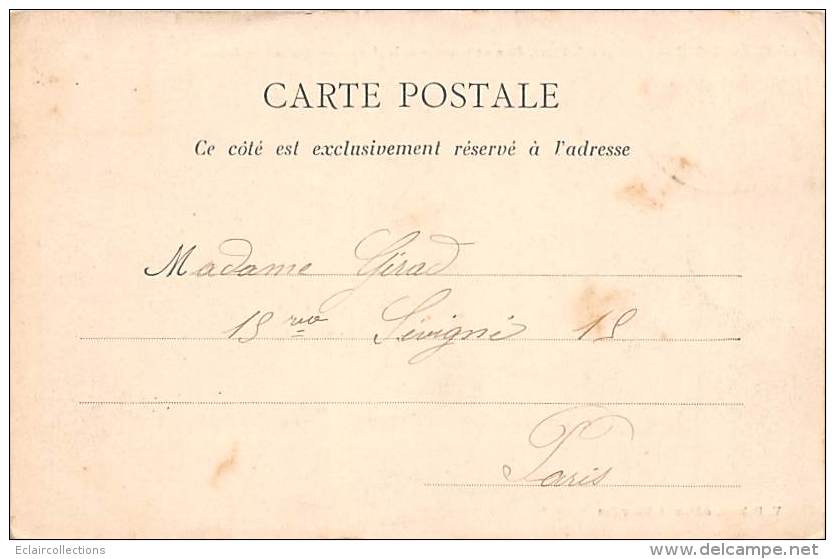 CARTE POSTALE
Ce côté est exclusivement réservé à l'adresse
Madame Girad
15 rue Sévigné 15
Paris
Eclaircollections
delcampe.net